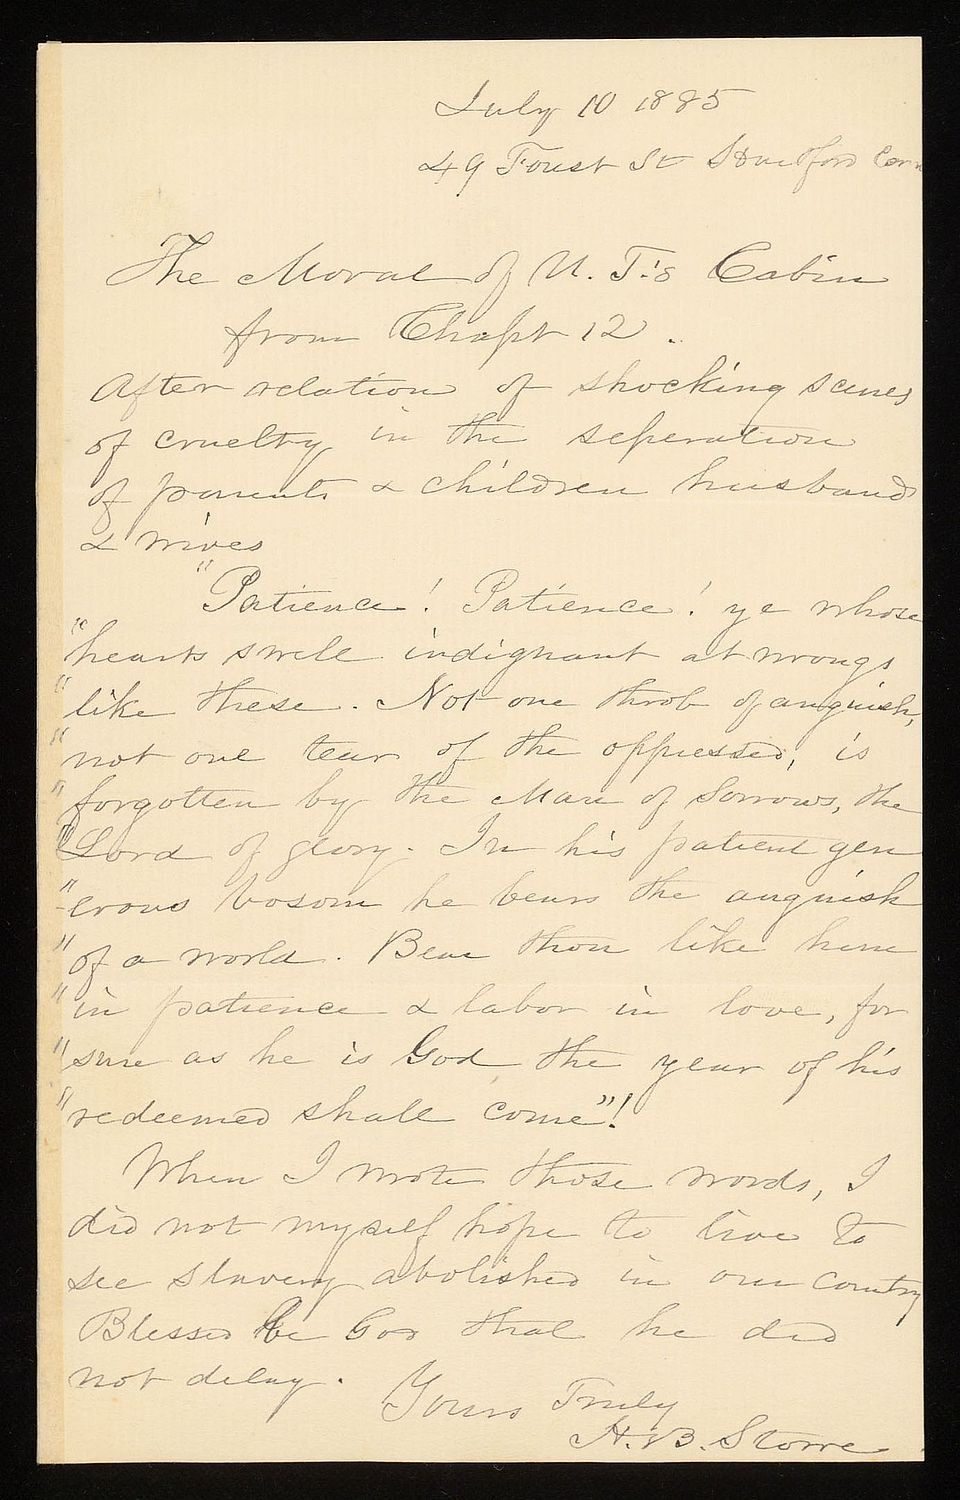 July 10 1885
49 Forest St Hartford Conn
The Moral of U. T.'s Cabin
from Chapt 12.
After relation of shocking scenes
of cruelty in the seperation
of parents & children husband
& wives
"Patience! Patience! ye whose
"hearts swell indignant at wrongs
"like these. Not one throb of anguish,
"not one tear of the oppressed, is
"forgotten by the Man of Sorrows, the
"Lord of glory. In his patient gen
"erous bosom he bears the anguish
"of a world. Bear thou like him
"in patience & labor in love, for
"sure as he is God the year of his
"redeemed shall come"!
When I wrote those words, I
did not myself hope to live to
see slavery abolished in our country
Blessed be God that he did
not delay.
Yours Truly
H. B. Stowe